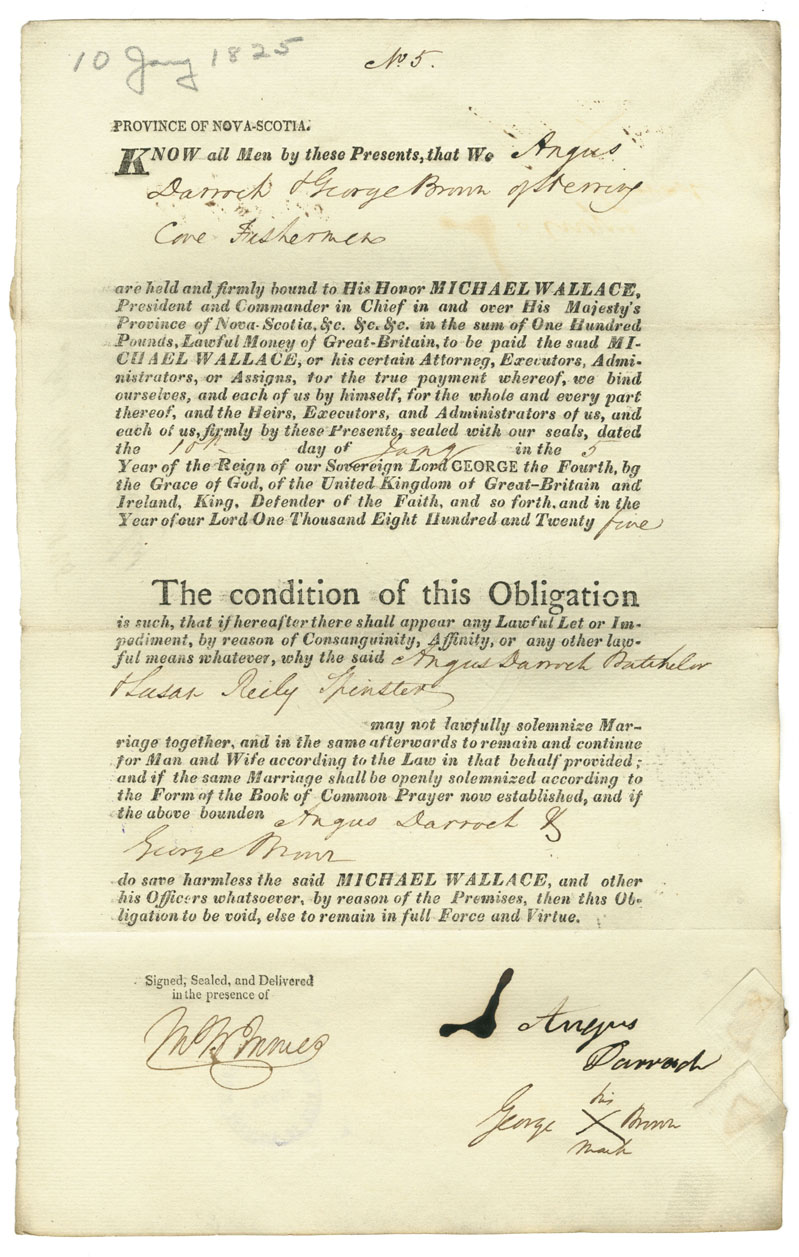 10 Jany 1825
No 5.
PROVINCE OF NOVA-SCOTIA.
KNOW all Men by these Presents, that We Angus
Darroch & George Brown of Herring
Cove Fishermen
are held and firmly bound to His Honor MICHAEL WALLACE,
President and Commander in Chief in and over His Majesty's
Province of Nova-Scotia, &c. &c. &c. in the sum of One Hundred
Pounds, Lawful Money of Great-Britain, to be paid the said MI-
CHAEL WALLACE, or his certain Attorneg, Executors, Admi-
nistrators, or Assigns, for the true payment whereof, we bind
ourselves, and each of us by himself, for the whole and every part
thereof, and the Heirs, Executors, and Administrators of us, and
each of us, firmly by these Presents, sealed with our seals, dated
the 10th day of Jany in the 5
Year of the Reign of our Sovereign Lord GEORGE the Fourth, bg
the Grace of God, of the United Kingdom of Great-Britain and
Ireland, King, Defender of the Faith, and so forth, and in the
Year of our Lord One Thousand Eight Hundred and Twenty five
The condition of this Obligation
is such, that if hereafter there shall appear any Lawful Let or Im-
pediment, by reason of Consanguinity, Affinity, or any other law-
ful means whatever, why the said Angus Darroch Batchelor
& Susan Reily Spinster
may not lawfully solemnize Mar-
riage together, and in the same afterwards to remain and continue
for Man and Wife according to the Law in that behalf provided;
and if the same Marriage shall be openly solemnized according to
the Form of the Book of Common Prayer now established, and if
the above bounden Angus Darroch &
George Brown
do save harmless the said MICHAEL WALLACE, and other
his Officers whatsoever, by reason of the Premises, then this Ob-
ligation to be void, else to remain in full Force and Virtue.
Signed, Sealed, and Delivered
in the presence of
Angus
Darroch
his
George X Brown
mark